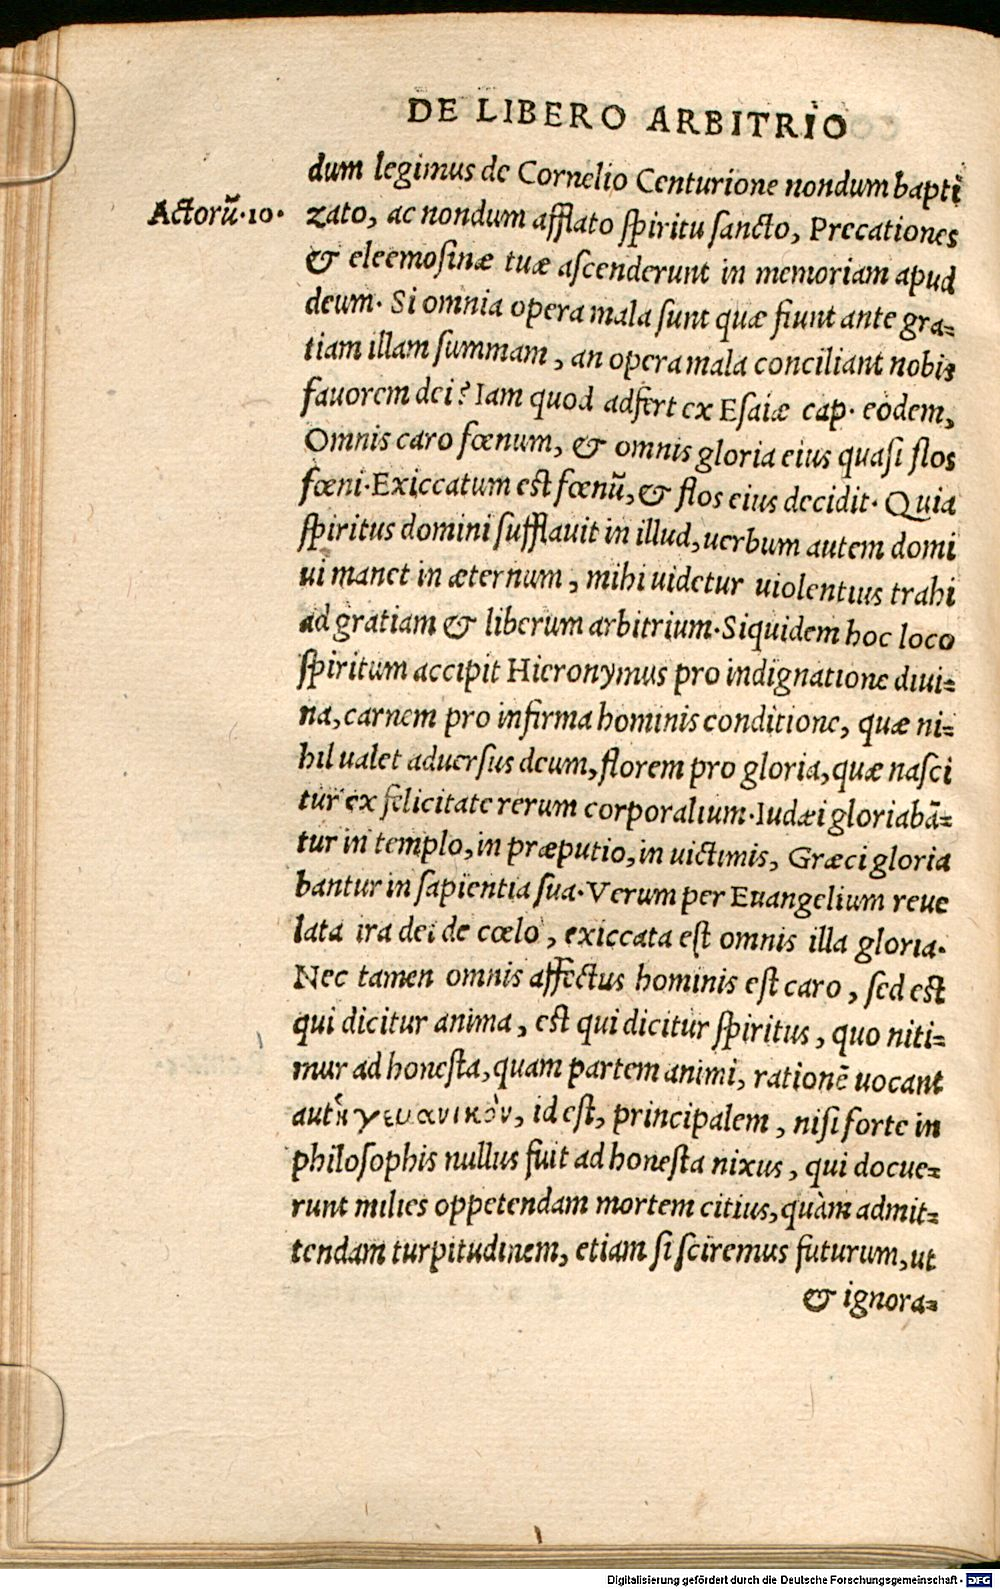 DE LIBERO ARBITRIO
dum legimus de Cornelio Centurione nondum bapti
Actorũ·10·
zato, ac nondum afflato spiritu sancto, Precationes
& eleemosinæ tuæ ascenderunt in memoriam apud
deum· Si omnia opera mala sunt quæ fiunt ante gra=
tiam illam summam, an opera mala conciliant nobis
favorem dei? Iam quod adfert ex Esaiæ cap· eodem,
Omnis caro fœnum, & omnis gloria eius quasi flos
fœni·Exiccatum est fœnũ, & flos eius decidit· Quia
spiritus domini sufflauit in illud, uerbum autem domi
ui manet in æternum, mihi uidetur uiolentius trahi
ad gratiam & liberum arbitrium·Siquidem hoc loco
spiritum accipit Hieronymus pro indignatione diui=
na, carnem pro infirma hominis conditione, quæ ni=
hil ualet aduersus deum, florem pro gloria, quæ nasci
tur ex felicitate rerum corporalium·Iudæi gloriabã=
tur in templo, in præputio, in uictimis, Græci gloria
bantur in sapientia sua·Verum per Euangelium reue
lata ira dei de cœlo, exiccata est omnis illa gloria·
Nec tamen omnis affectus hominis est caro, sed est
qui dicitur anima, est qui dicitur spiritus, quo niti=
mur ad honesta, quam partem animi, rationẽ uocant
aut id est, principalem, nisi forte in
philosophis nullus fuit ad honesta nixus, qui docue=
runt milies oppetendam mortem citius, quàm admit=
tendam turpitudinem, etiam si sciremus futurum, ut
& ignora=
Digitalisierung gefördert durch die Deutsche Forschungsgemeinschaft - DFG